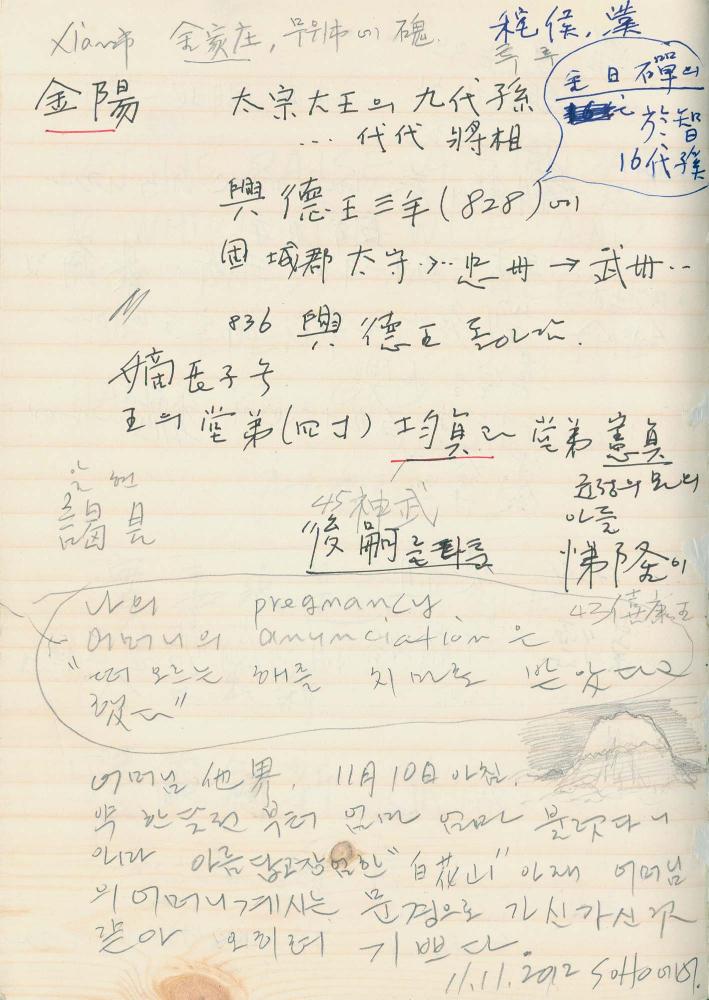 Xian市 金家庄,
秺侯,
투후
金陽
太宗大王의 九代孫
… 代代 將相
金日磾의
於智
16代孫
興德王三年(828)에
固城郡 太守 … 忠州 → 武州..
836 興德王 돌아감.
嫡長子 등
王의 堂弟(四寸) 均貞과 堂弟 憲貞
알현
謁見
45神武
後嗣를 다툼
아들
悌隆이
43僖康王
나의 pregnancy
어머니의 anunciation은
"떠오르는 해를 치마로 받았다고
했다"
어머님 他界, 11月10日 아침.
약 한달전 부터 엄마 엄마 불렀다니
아마 아름답고장엄한 "白花山" 아래 어머님
의 어머니계시는 문경으로 가신
같아 오히려 기쁘다.
11.11.2012 SOHO에서.